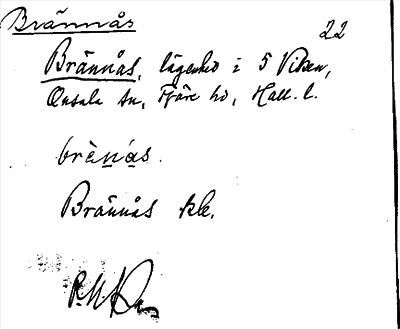 Brännås 22
Brännås, lägenhet i 5 Viken,
Onsala sn, Fjäre hd, Hall. l.
brènás.
Brännås kle.